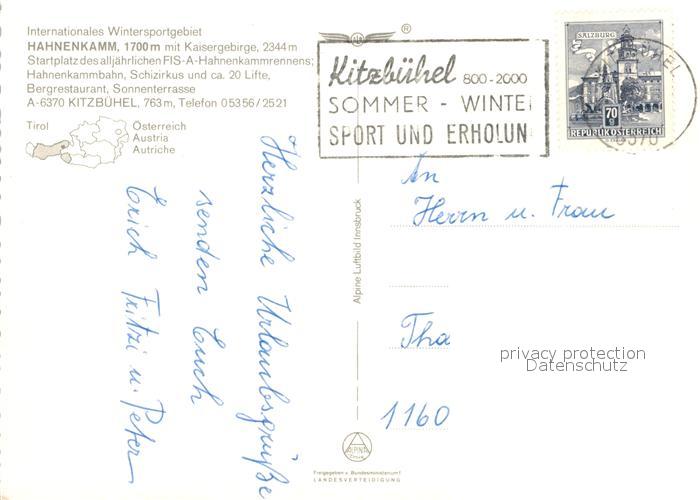 Internationales Wintersportgebiet
HAHNENKAMM, 1700 m mit Kaisergebirge, 2344 m
Startplatz des alljährlichen FIS-A-Hahnenkammrennens;
Hahnenkammbahn, Schizirkus und ca. 20 Lifte,
Bergrestaurant, Sonnenterrasse
A-6370 KITZBÜHEL, 763 m, Telefon 0 53 56 / 25 21
Tirol
Österreich
Austria
Autriche
Herzliche Urlaubsgrüße
senden Euch
Erich Fritzi u. Peter
®
Kitzbühel 800-2000
SOMMER - WINTE
SPORT UND ERHOLUN
SALZBURG
70 g
REPUBLIK ÖSTERREICH
6370
Alpine Luftbild Innsbruck
An
Herrn u. Frau
Tha
privacy protection
Datenschutz
1160
ALPINA
Freigegeben v. Bundesministerium f.
LANDESVERTEIDIGUNG